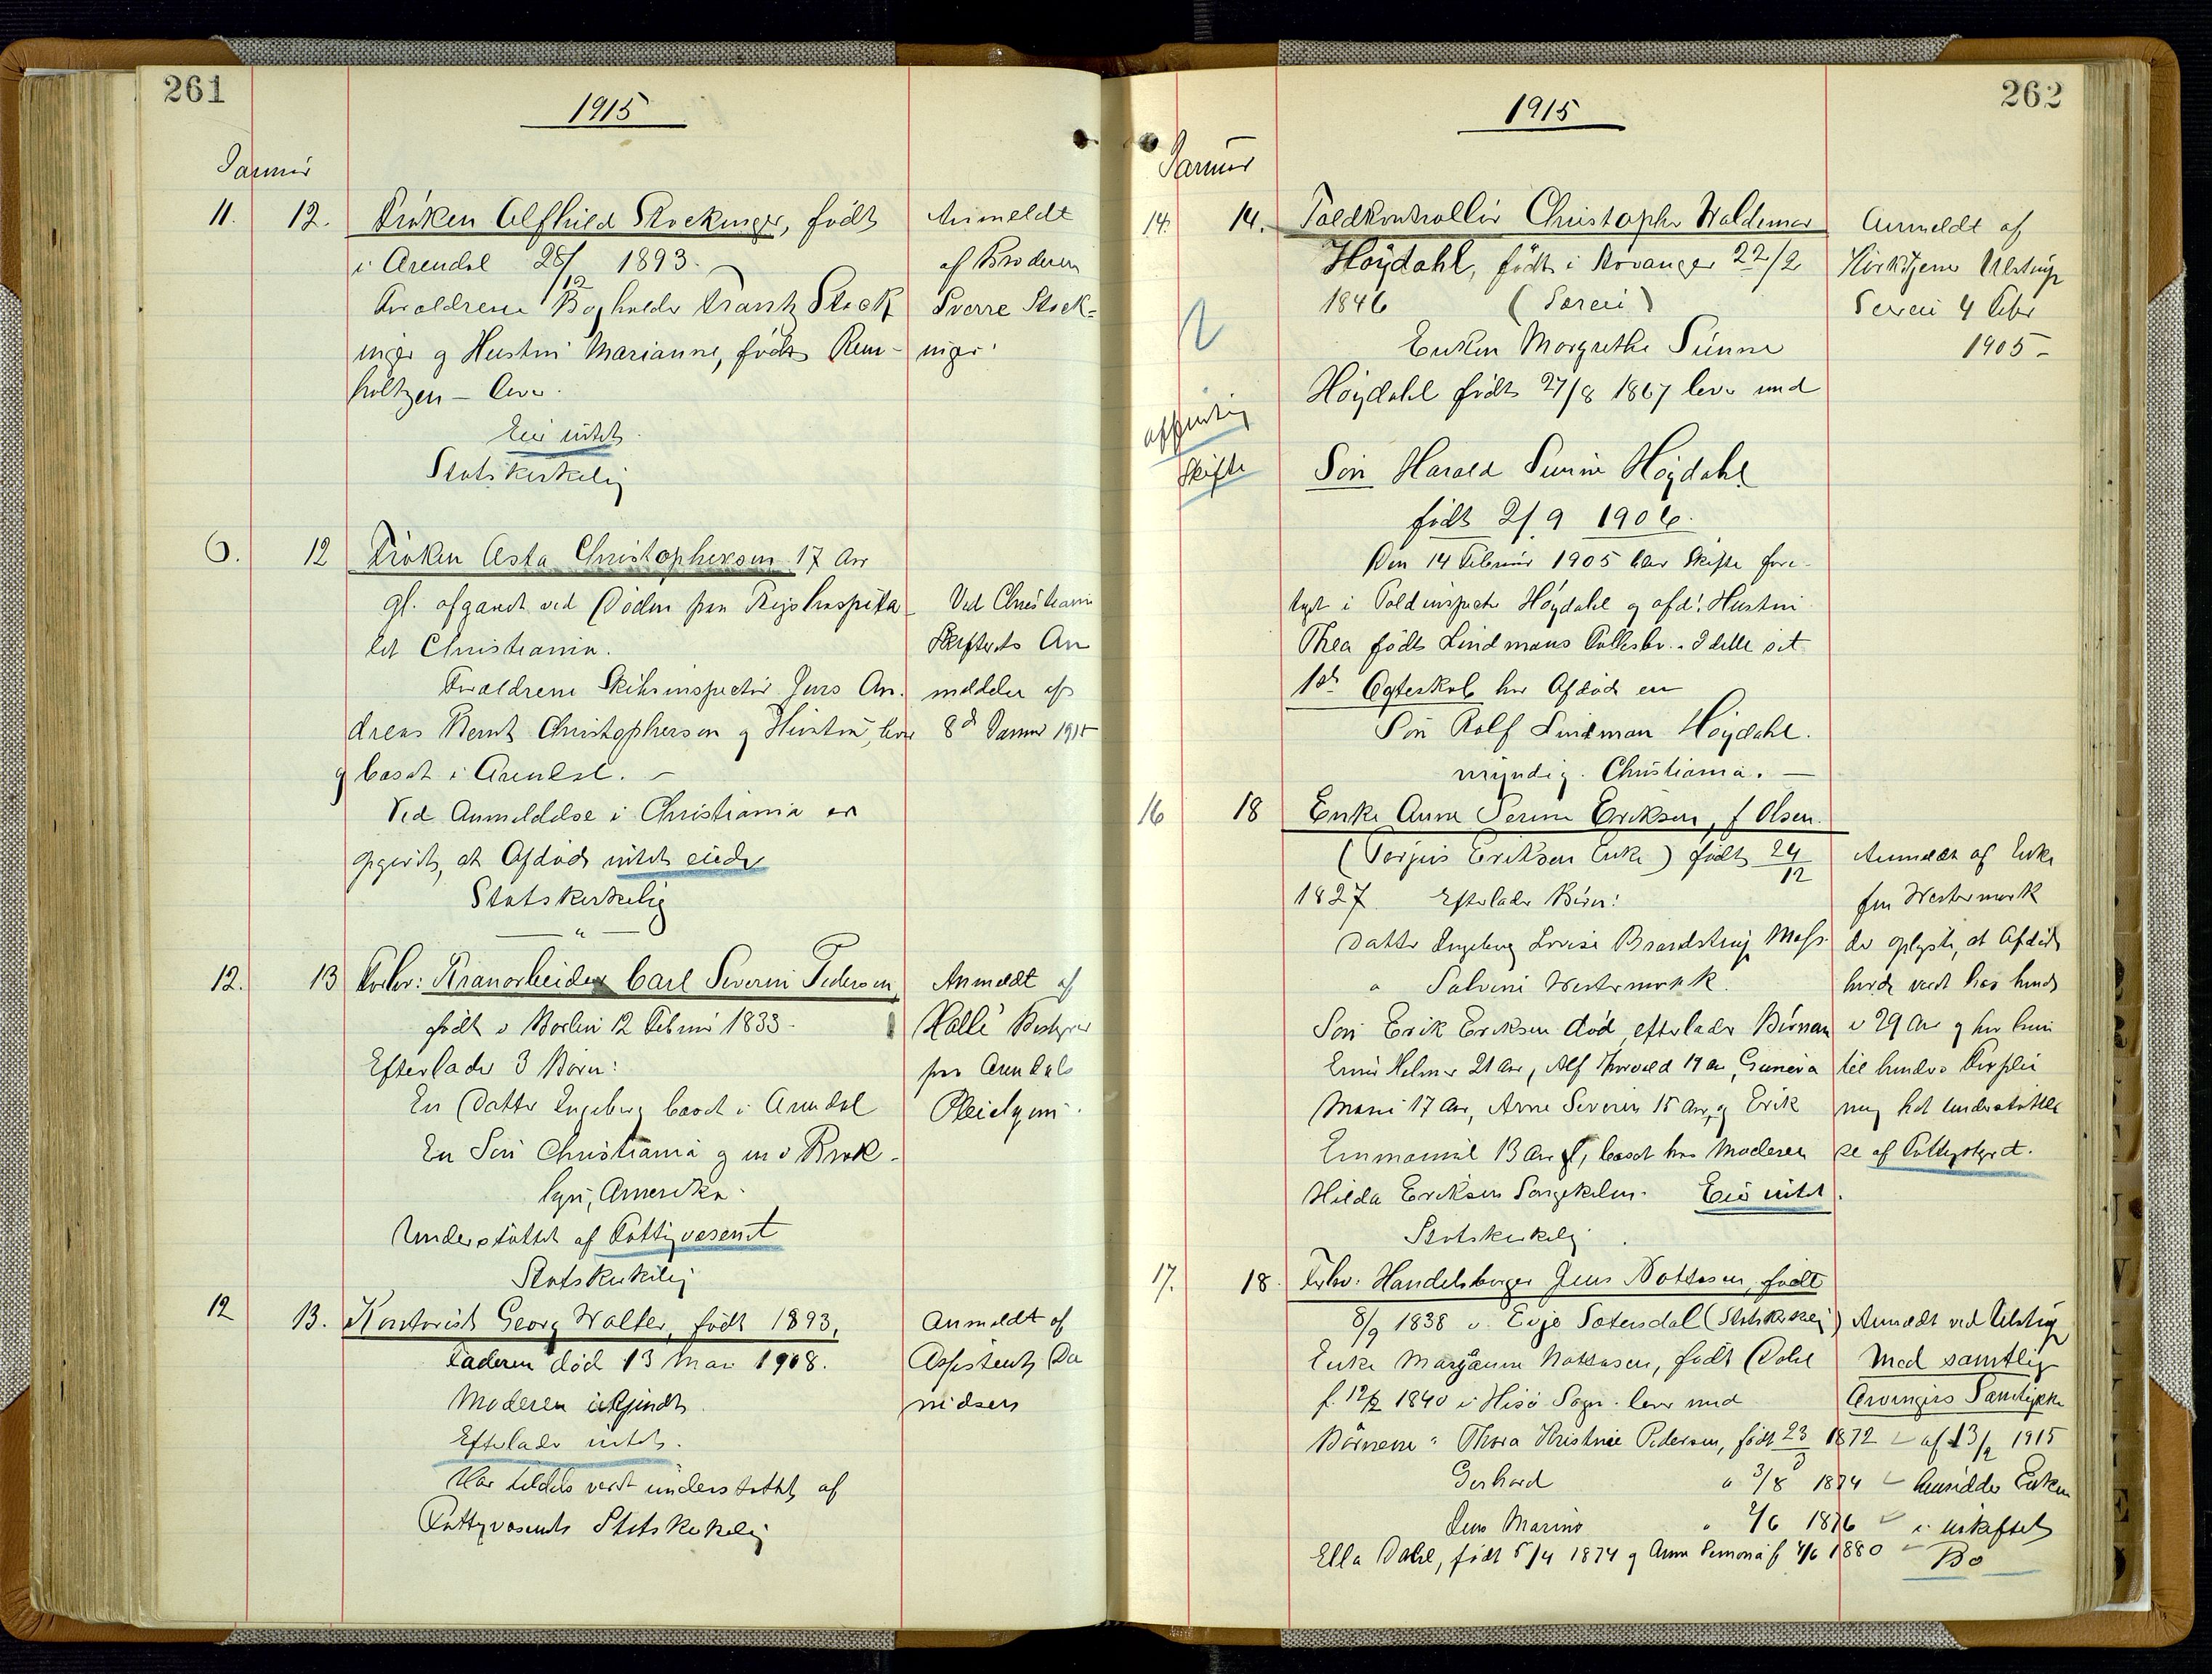 261
1915
Januar
11. 12. Fröken Alfhild Stockinger, født
i Arendal 28/12 1893.
Forældrene Bogholder Frantz Stock
inger og Hustru Marianne, født Rein-
holtzen – lever.
Eier intet.
Statskirkelig
Anmeldt
af Broderen
Sverre Stock-
inger.
6. 12 Fröken Asta Christophersen 17 Aar
gl. afgaaet ved Döden paa Rigshospita
let Christiania.
Forældrene Skibsinspectör Jens An-
dreas Bernt Christophersen og Hustru, lever
og bosat i Arendal. –
Ved Anmeldelse i Christiania er
opgivet, at Afdöde intet eiede
Statskirkelig
Ved Christiania
Skifterets An
meldelse af
8de Januar 1915
12. 13 Forhv: Kranarbeider Carl Severin Pedersen,
født 12 Februar 1833.
Efterlader 3 Børn:
En Datter Ingeborg bosat i Arendal
En Søn Christiania og en i Brok-
lyn, Amerika.
Understöttet af Fattigvæsenet
Statskirkelig
Anmeldt af
Bestyrer
paa Arendals
Pleiehjem.
12 13. Kontorist Georg Walter, født 1893,
Faderen död 13 Mai 1908.
Moderen ubekjendt.
Efterlader intet.
Har tildels været understöttet af
Fattigvæsenet Statskirkelig
Anmeldt af
Assistent Da
nielsen
262
1915
Januar
14. 14. Toldkontrollör Christopher Waldemar
Höydahl, født i 22/2
1846
Enken Margrethe Sunne
Höydahl født 27/8 1867 lever med
offentlig
Skifte
Søn Harald Sunne Höydahl
født 2/9 1906.
Den 14 Februar 1905 blev Skifte fore-
taget i Toldinspectör Höydahl og afd. Hustru
Thea født Lindmans Fællesbo. I dette sit
1ste Ægteskab har Afdöde en
Søn Rolf Lindman Höydahl.
myndig. Christiania. –
Anmeldt af
Kirketjener Ulstrup
4 Febr
1905 –
16 18 Enke Anna Serine Eriksen, f Olsen.
(Torjus Eriksen Enke) født 24/12
1827. Efterlader Börn:
Datter Ingeborg Lovise Brandsting Moss.
" Salvine Westermark.
Søn Erik Eriksen död efterlader Börnene
Einar Helmer 21 Aar, Alf Thorvald 19 Aar, Gunvora
Marie 17 Aar, Arne Severin 15 Aar, og Erik
Emmanuel 13 Aar, bosat hos Moderen
Hilda Eriksen Songekilen. Eier intet.
Statskirkelig
Anmeldt af Enke
fru Westermark
der oplyste, at Afdöde
havde været hos hende
i 29 Aar og har hun
til hendes Forplei
ning faat understöttel
se af Fattigstyret.
17. 18. Forhv: Handelsborger Jens Nottosen, født
8/9 1838 i Evje Sætersdal (Statskirkelig)
Enke Margaune Nottosen, født Dahl
f. 12/2 1840 i Hisö Sogn. lever med
Börnene: Thora Kristine Pedersen, født 23 1872
Gerhard " 3/8 1874
Jens Marius " 2/6 1876
Ella Dahl, født 5/4 1874 og Anna f 4/6 1880
Anmeldt ved Ulstrup
Med samtlige
Arvingers Samtykke
af 13/2 1915
hensidder Enken
i uskiftet
Bo